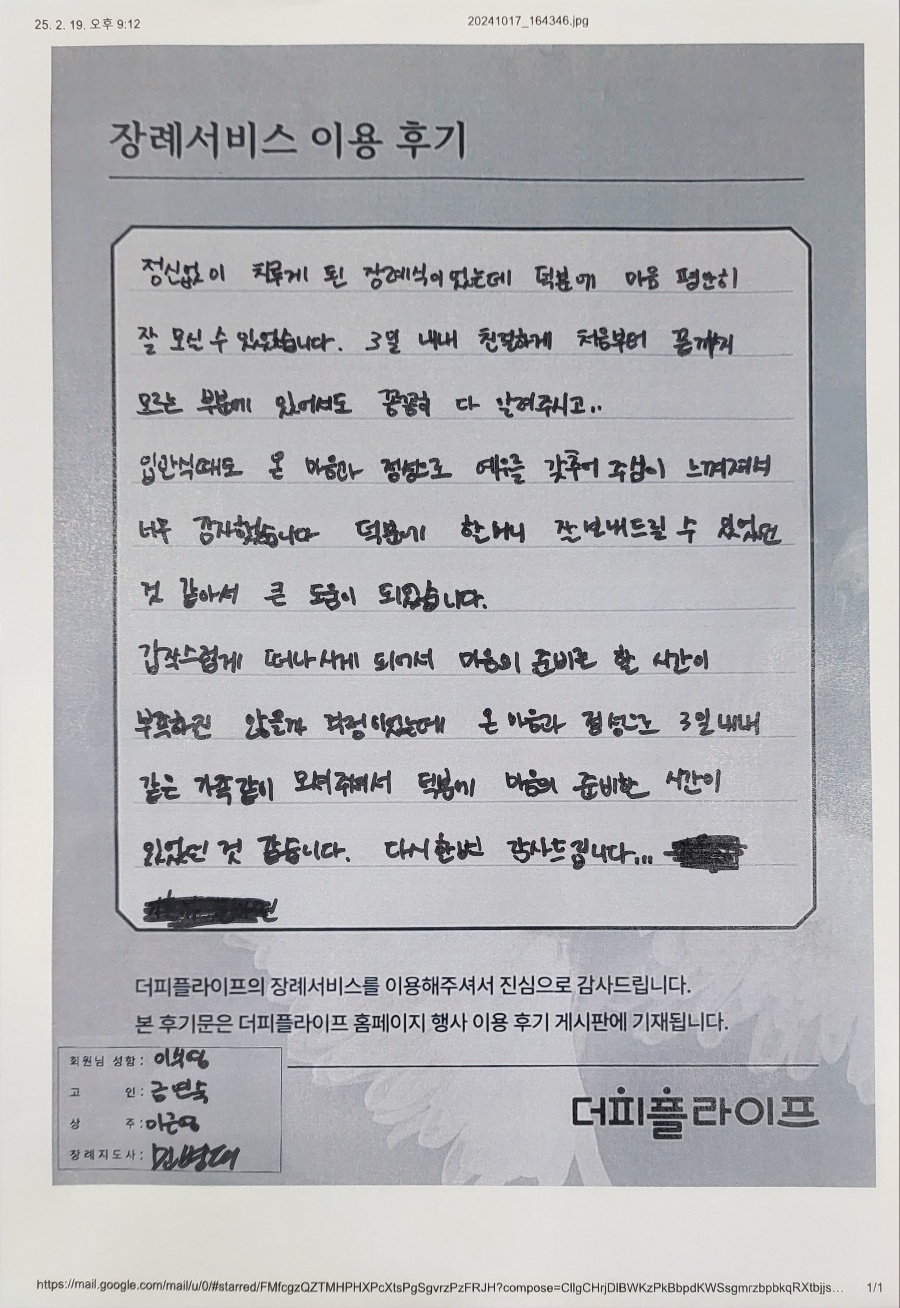 25. 2. 19. 오후 9:12
20241017_164346.jpg
장례서비스 이용 후기
정신없이 치루게 된 장례식이었는데 덕분에 마음 평안히
잘 모실 수 있었습니다. 3일 내내 친절하게 처음부터 끝까지
모르는 부분에 있어서도 꼼꼼히 다 알려주시고..
입관식때도 온 마음과 정성으로 예우를 갖추어 주심이 느껴져서
너무 감사했습니다 덕분에 할머니 잘 보내드릴 수 있었던
것 같아서 큰 도움이 되었습니다.
갑작스럽게 떠나시게 되어서 마음의 준비를 할 시간이
부족하진 않을까 걱정이었는데 온 마음과 정성으로 3일 내내
같은 가족같이 모셔주셔서 덕분에 마음의 준비할 시간이
있었던 것 같습니다. 다시한번 감사드립니다...
더피플라이프의 장례서비스를 이용해주셔서 진심으로 감사드립니다.
본 후기문은 더피플라이프 홈페이지 행사 이용 후기 게시판에 기재됩니다.
회원님 성함:
고 인: 금연숙
상 주: 이근영
장례지도사: 민병대
더피플라이프
https://mail.google.com/mail/u/0/#starred/FMfcgzQZTMHPHXPcXtsPgSgvrzPzFRJH?compose=CllgCHrjDlBWKzPkBbpdKWSsgmrzbpbkqRXtbjjs...
1/1